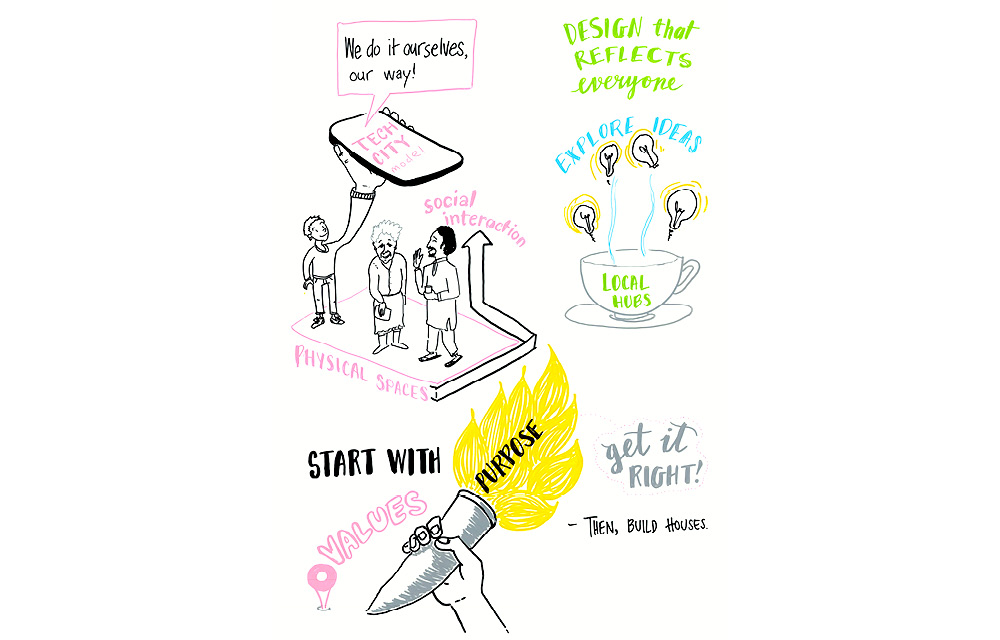 We do it ourselves,
our way!
TECH
CITY
model
social
interaction
PHYSICAL SPACES
DESIGN that
REFLECTS
everyone
EXPLORE IDEAS
LOCAL
HUBS
START WITH
PURPOSE
VALUES
get it
RIGHT!
– THEN, BUILD HOUSES.